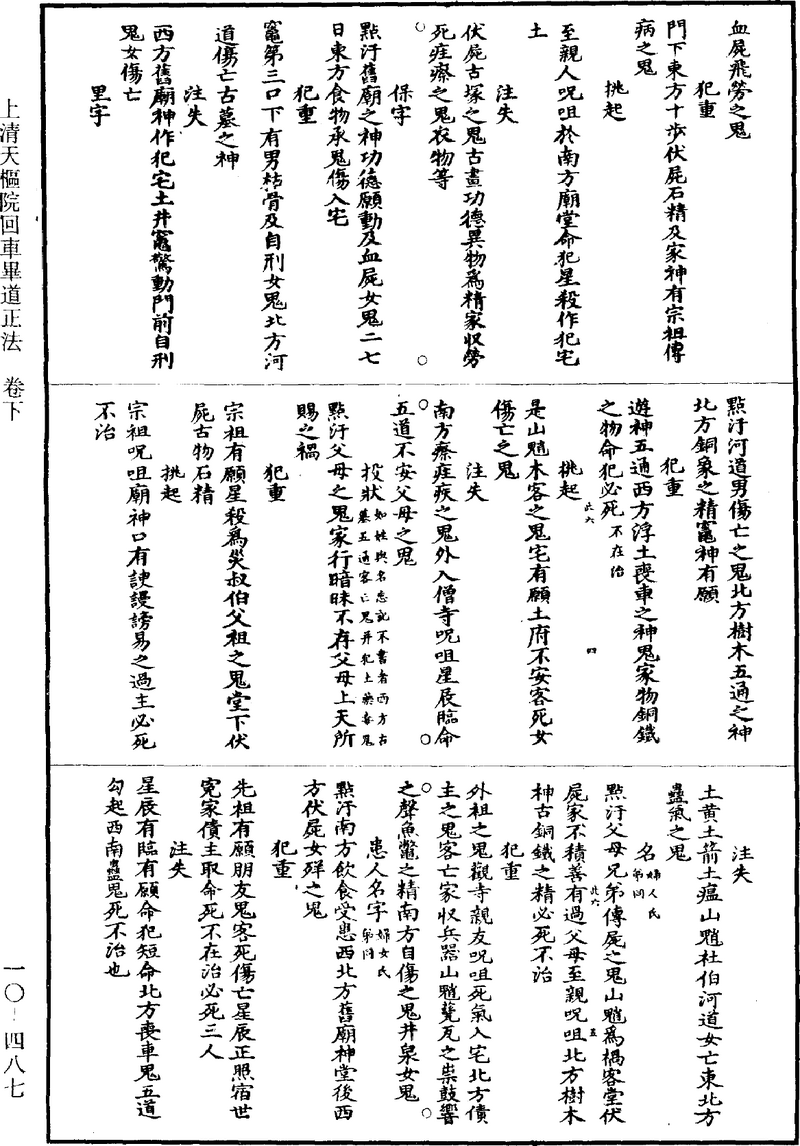 血屍飛勞之鬼
犯重
門下東方十步伏屍石精及家神有宗祖傳
病之鬼
挑起
至親人呪咀於南方廟堂命犯星殺作犯宅
土
注失
伏屍古塚之鬼古畫功德異物爲精家收勞
死疰瘵之鬼衣物等
保字
點汙舊廟之神功德願動及血屍女鬼二七
日東方食物承鬼傷入宅
犯重
竈第三口下有男枯骨及自刑女鬼北方河
道傷亡古墓之神
注失
西方舊廟神作犯宅土井竈驚動門前自刑
鬼女傷亡
里字
點汙河道男傷亡之鬼北方樹木五通之神
北方銅象之精竈神有願
犯重
遊神五通西方浮土喪車之神鬼家物銅鐵
之物命犯必死不在治
挑起
是山魈木客之鬼宅有願土府不安客死女
傷亡之鬼
注失
南方瘵疰疾之鬼外入僧寺呪咀星辰臨命
五道不安父母之鬼
投狀
點汙父母之鬼家行暗昧不存父母上天所
賜之禍
犯重
宗祖有願星殺爲災叔伯父祖之鬼堂下伏
屍古物石精
挑起
宗祖呪咀廟神口有諛謾謗易之過主必死
不治
注失
土黃土箭土瘟山魈杜伯河道女亡東北方
蠱氣之鬼
名婦人氏第門
點汙父母兄弟傳屍之鬼山魈爲禍客堂伏
屍家不積善有過父母至親呪咀北方樹木
神古銅鐵之精必死不治
犯重
外祖之鬼觀寺親友呪咀死氣入宅北方債
主之鬼客亡家收兵器山魈甕瓦之祟鼓響
之聲魚鱉之精南方自傷之鬼井泉女鬼
患人名字婦女氏第門
點汙南方飲食受患西北方舊廟神堂後西
方伏屍女殍之鬼
犯重
先祖有願朋友鬼客死傷亡星辰正照宿世
冤家債主取命死不在治必死三人
注失
星辰有臨有願命犯短命北方喪車鬼五道
勾起西南蠱鬼死不治也
上清天樞院回車畢道正法 卷下
一〇-四八七